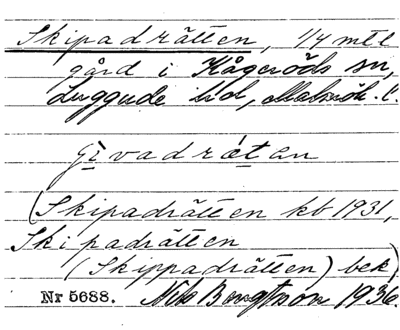 Skipadrätten, 1/4 mtl
gård i Kågeröds sn,
Luggude hd, Malmöh. l.
givadrǽtan
(Skipadrätten kb 1931,
Skipadrätten
(Skippadrätten) bek)
Nr 5688. Nils Bengtsson 1936.